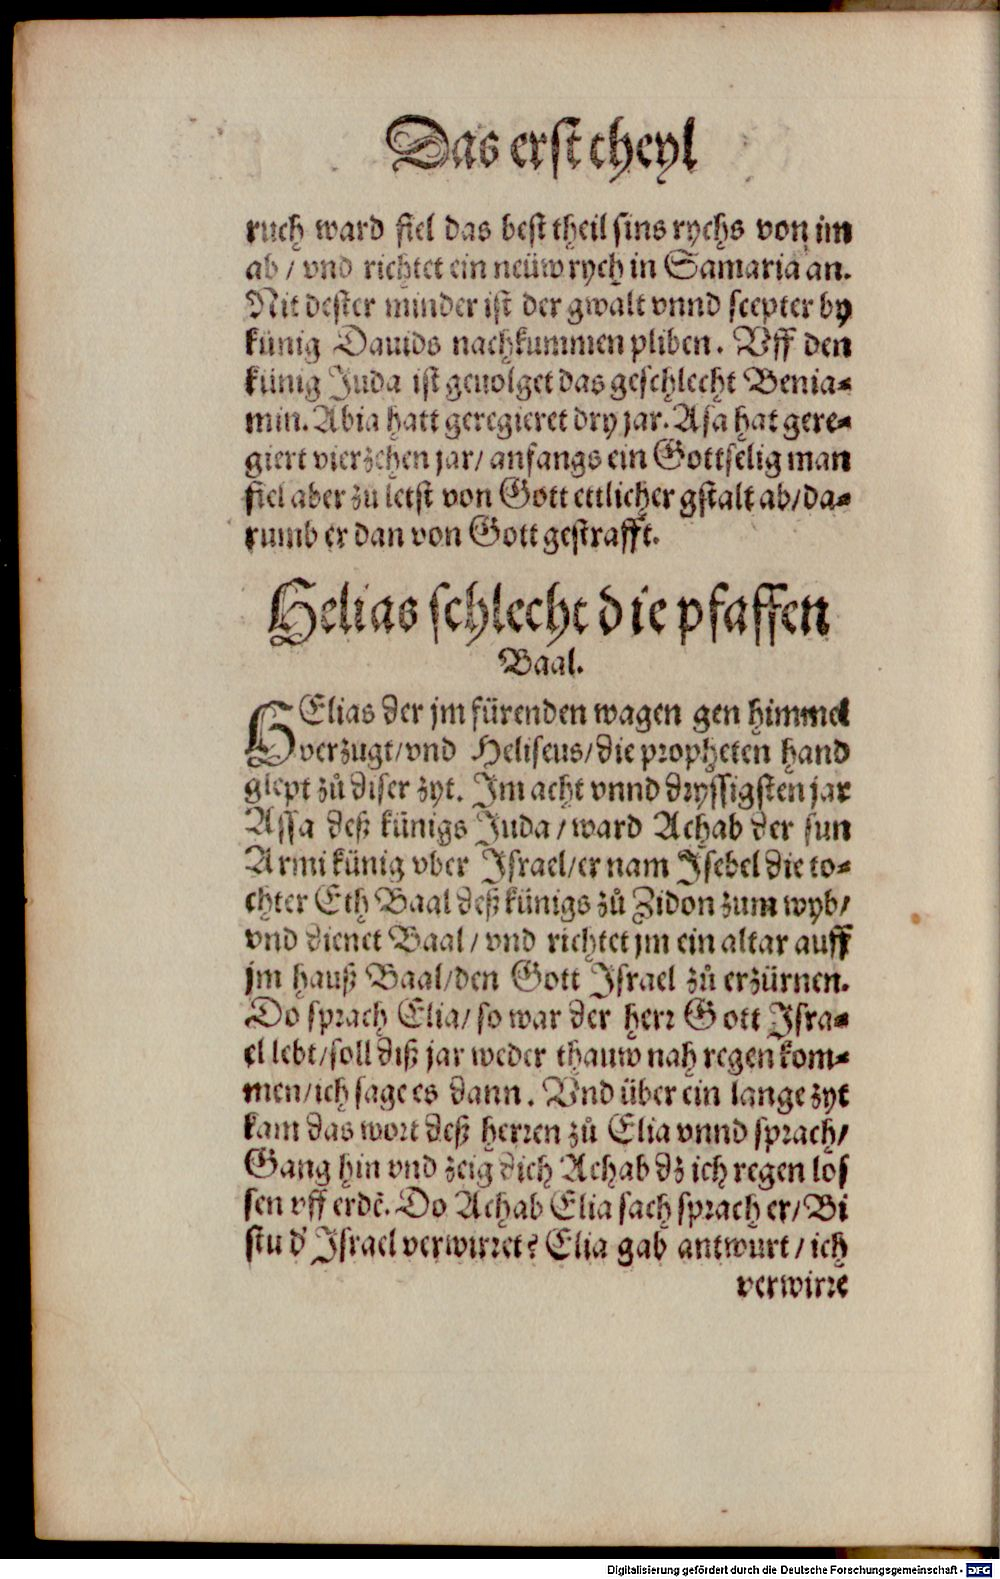 Das erst theyl
ruch ward fiel das best theil sins rychs von im
ab / vnd richtet ein neüw rych in Samaria an.
Nit dester minder ist der gwalt vnnd scepter by
künig Dauids nachkummen pliben. Vff den
künig Juda ist geuolget das geschlecht Benia-
min. Abia hatt geregieret dry jar. Asa hat gere-
giert vierzehen jar/ anfangs ein Gottselig man
fiel aber zu letst von Gott ettlicher gstalt ab/da-
rumb er dan von Gott gestrafft.
Helias schlecht die pfaffen
Baal.
HElias der jm fürenden wagen gen himmel
verzugt/vnd Heliseus/die propheten hand
glept zů diser zyt. Im acht vnnd dryssigsten jar
Assa deß künigs Juda/ward Achab der sun
Armi künig vber Israel/er nam Isebel die to-
chter Eth Baal deß künigs zů Zidon zum wyb/
vnd dienet Baal/vnd richtet jm ein altar auff
jm hauß Baal/den Gott Israel zů erzürnen.
Do sprach Elia/so war der herr Gott Isra-
el lebt/soll diß jar weder thauw nah regen kom-
men/ich sage es dann. Vnd über ein lange zyt
kam das wort deß herren zů Elia vnnd sprach/
Gang hin vnd zeig dich Achab dz ich regen los
sen vff erdē. Do Achab Elia sach sprach er/Bi
stu d' Israel verwirret? Elia gab antwurt/ich
verwirre
Digitalisierung gefördert durch die Deutsche Forschungsgemeinschaft - DFG